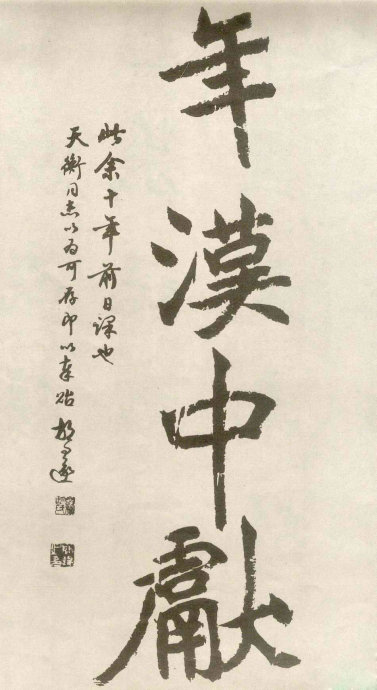 年漢中獻
此余十年前日課也
天衡同志以為可存即以奉貽